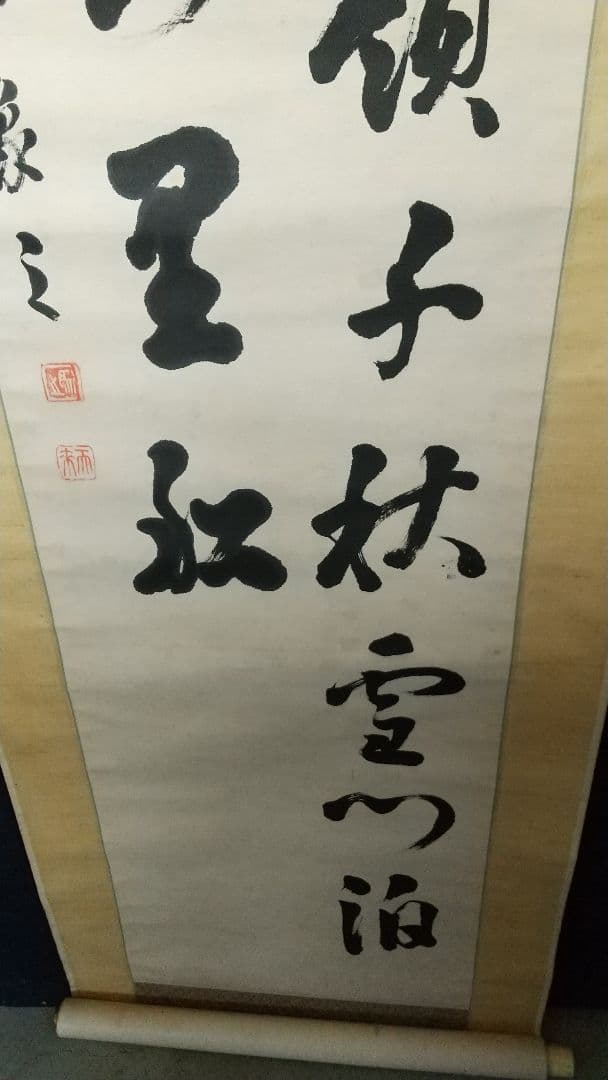 嶺千秋雪門泊
里船
之